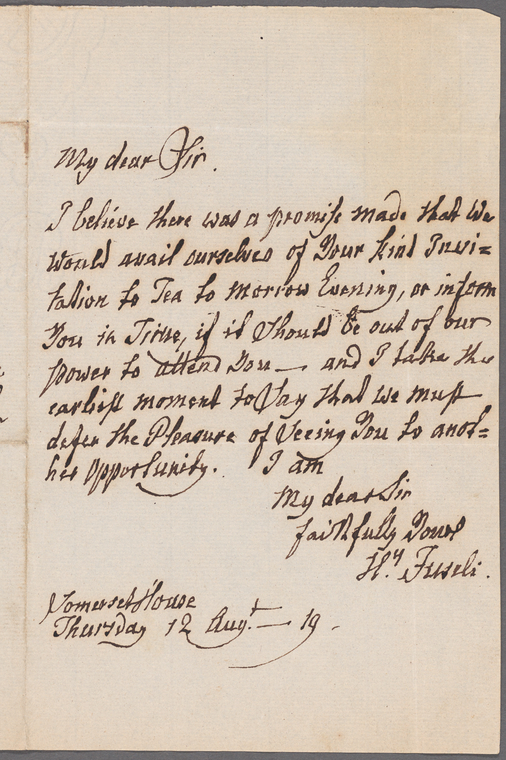 My dear Sir.
I believe there was a promise made that We
would avail ourselves of Your kind Invi=
tation to Tea to morrow Evening, or inform
You in Time, if it Should be out of our
power to attend You — and I take the
earliest moment to Say that we must
defer the Pleasure of Seeing You to anot=
her Opportunity. I am
My dear Sir
faithfully Yours
Hy. Fuseli.
Somerset House
Thursday 12 Augt. — 19 -